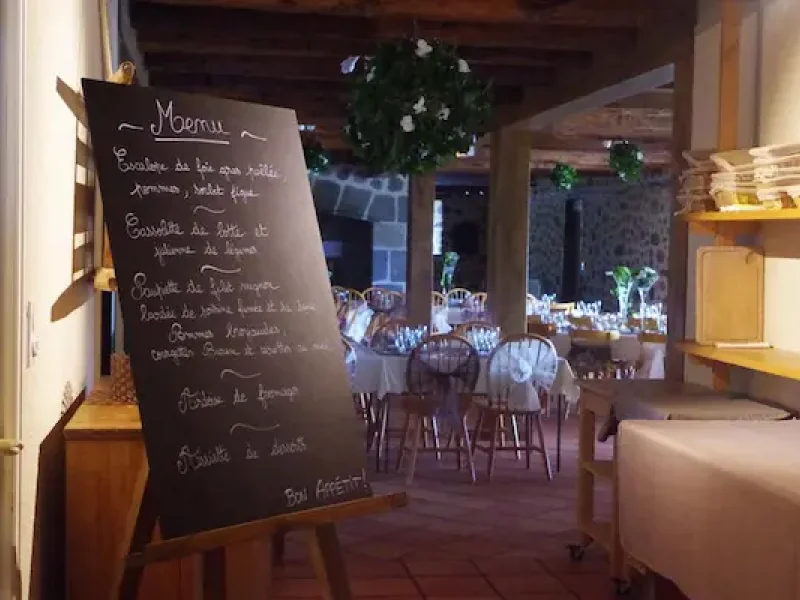 Menu
Escalope de foie gras poêlée,
pommes, sorbet figue
Cassolette de lotte et
julienne de légumes
Paupiette de filet mignon
bardée de poitrine fumée et de
Pommes
courgettes et
Ardoise de fromages
Assiette de desserts
BON APPÉTIT!